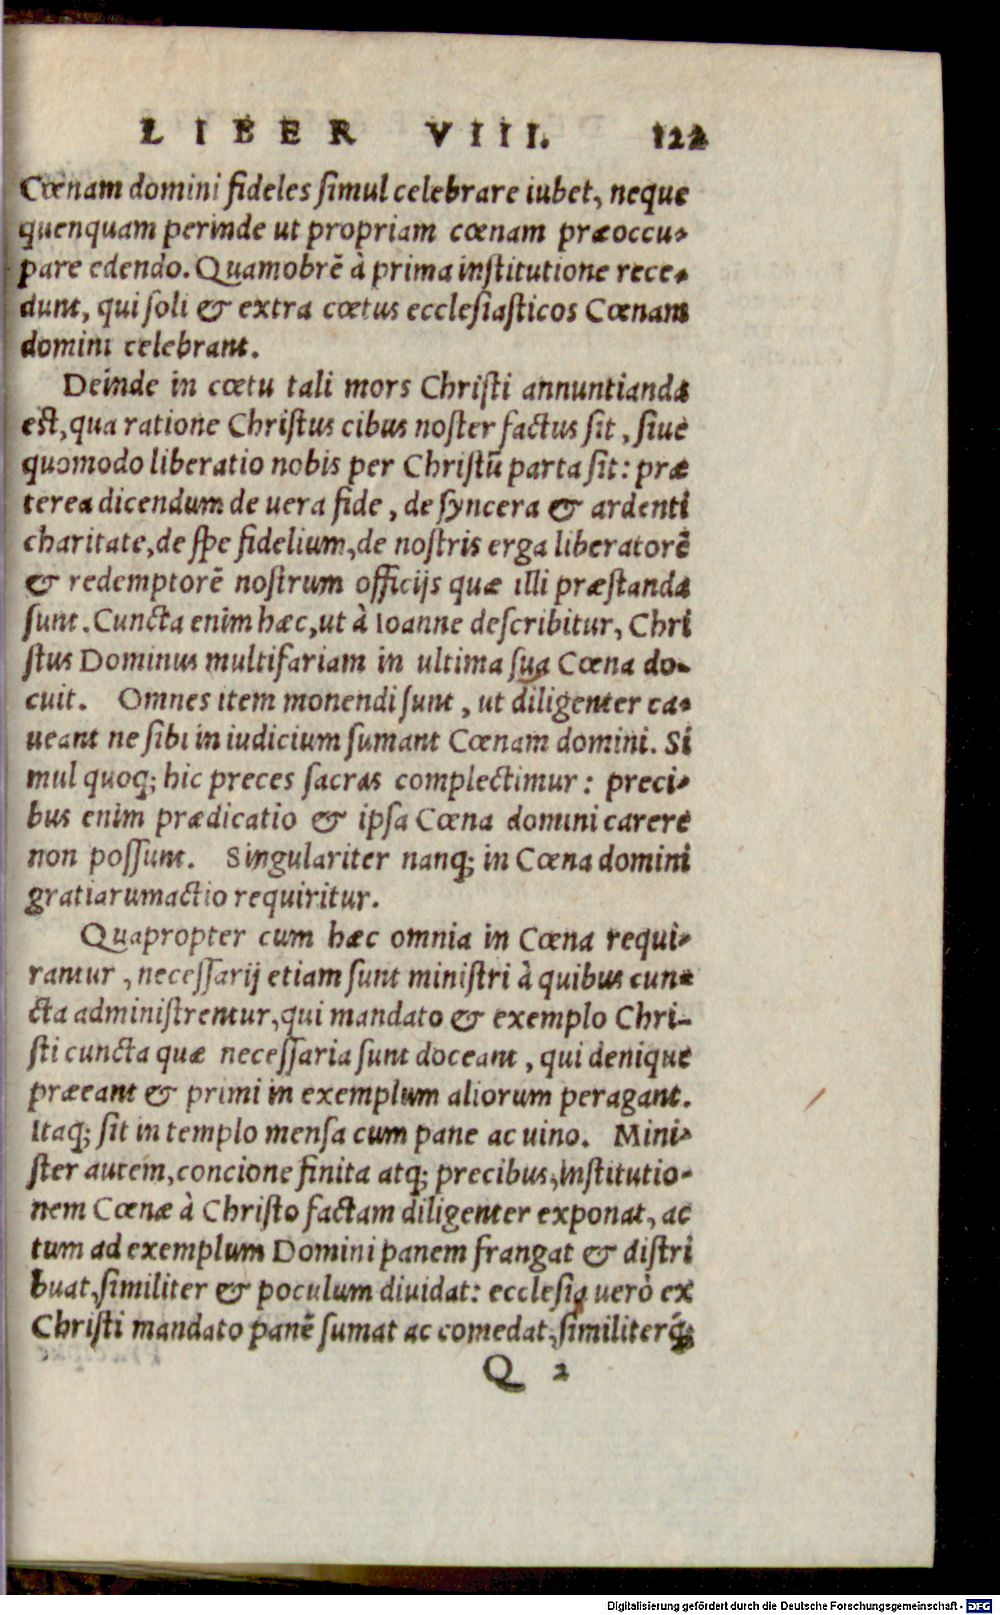 LIBER VIII. 122
Cœnam domini fideles ſimul celebrare iubet, neque
quenquam perinde ut propriam cœnam præoccu-
pare edendo. Quamobrē à prima inſtitutione rece-
dunt, qui ſoli & extra cœtus eccleſiaſticos Cœnam
domini celebrant.
Deinde in cœtu tali mors Chriſti annuntianda
eſt, qua ratione Chriſtus cibus noſter factus ſit, ſiue
quomodo liberatio nobis per Chriſtū parta ſit: præ
terea dicendum de uera fide, de ſyncera & ardenti
charitate, de ſpe fidelium, de noſtris erga liberatorē
& redemptorē noſtrum officijs quæ illi præſtanda
ſunt. Cuncta enim hæc, ut à Ioanne deſcribitur, Chri
ſtus Dominus multifariam in ultima ſua Cœna do-
cuit. Omnes item monendi ſunt, ut diligenter ca-
ueant ne ſibi in iudicium ſumant Cœnam domini. Si
mul quoq; hic preces ſacras complectimur: preci-
bus enim prædicatio & ipſa Cœna domini carere
non poſſunt. Singulariter nanq; in Cœna domini
gratiarumactio requiritur.
Quapropter cum hæc omnia in Cœna requi-
rantur, neceſſarij etiam ſunt miniſtri à quibus cun-
cta adminiſtrentur, qui mandato & exemplo Chri-
ſti cuncta quæ neceſſaria ſunt doceant, qui denique
præeant & primi in exemplum aliorum peragant.
Itaq; ſit in templo menſa cum pane ac uino. Mini-
ſter autem, concione finita atq; precibus, inſtitutio-
nem Cœnæ à Chriſto factam diligenter exponat, ac
tum ad exemplum Domini panem frangat & diſtri
buat, ſimiliter & poculum diuidat: eccleſia uerò ex
Chriſti mandato panē ſumat ac comedat, ſimiliterq́;
Q 2
Digitalisierung gefördert durch die Deutsche Forschungsgemeinschaft - DFG